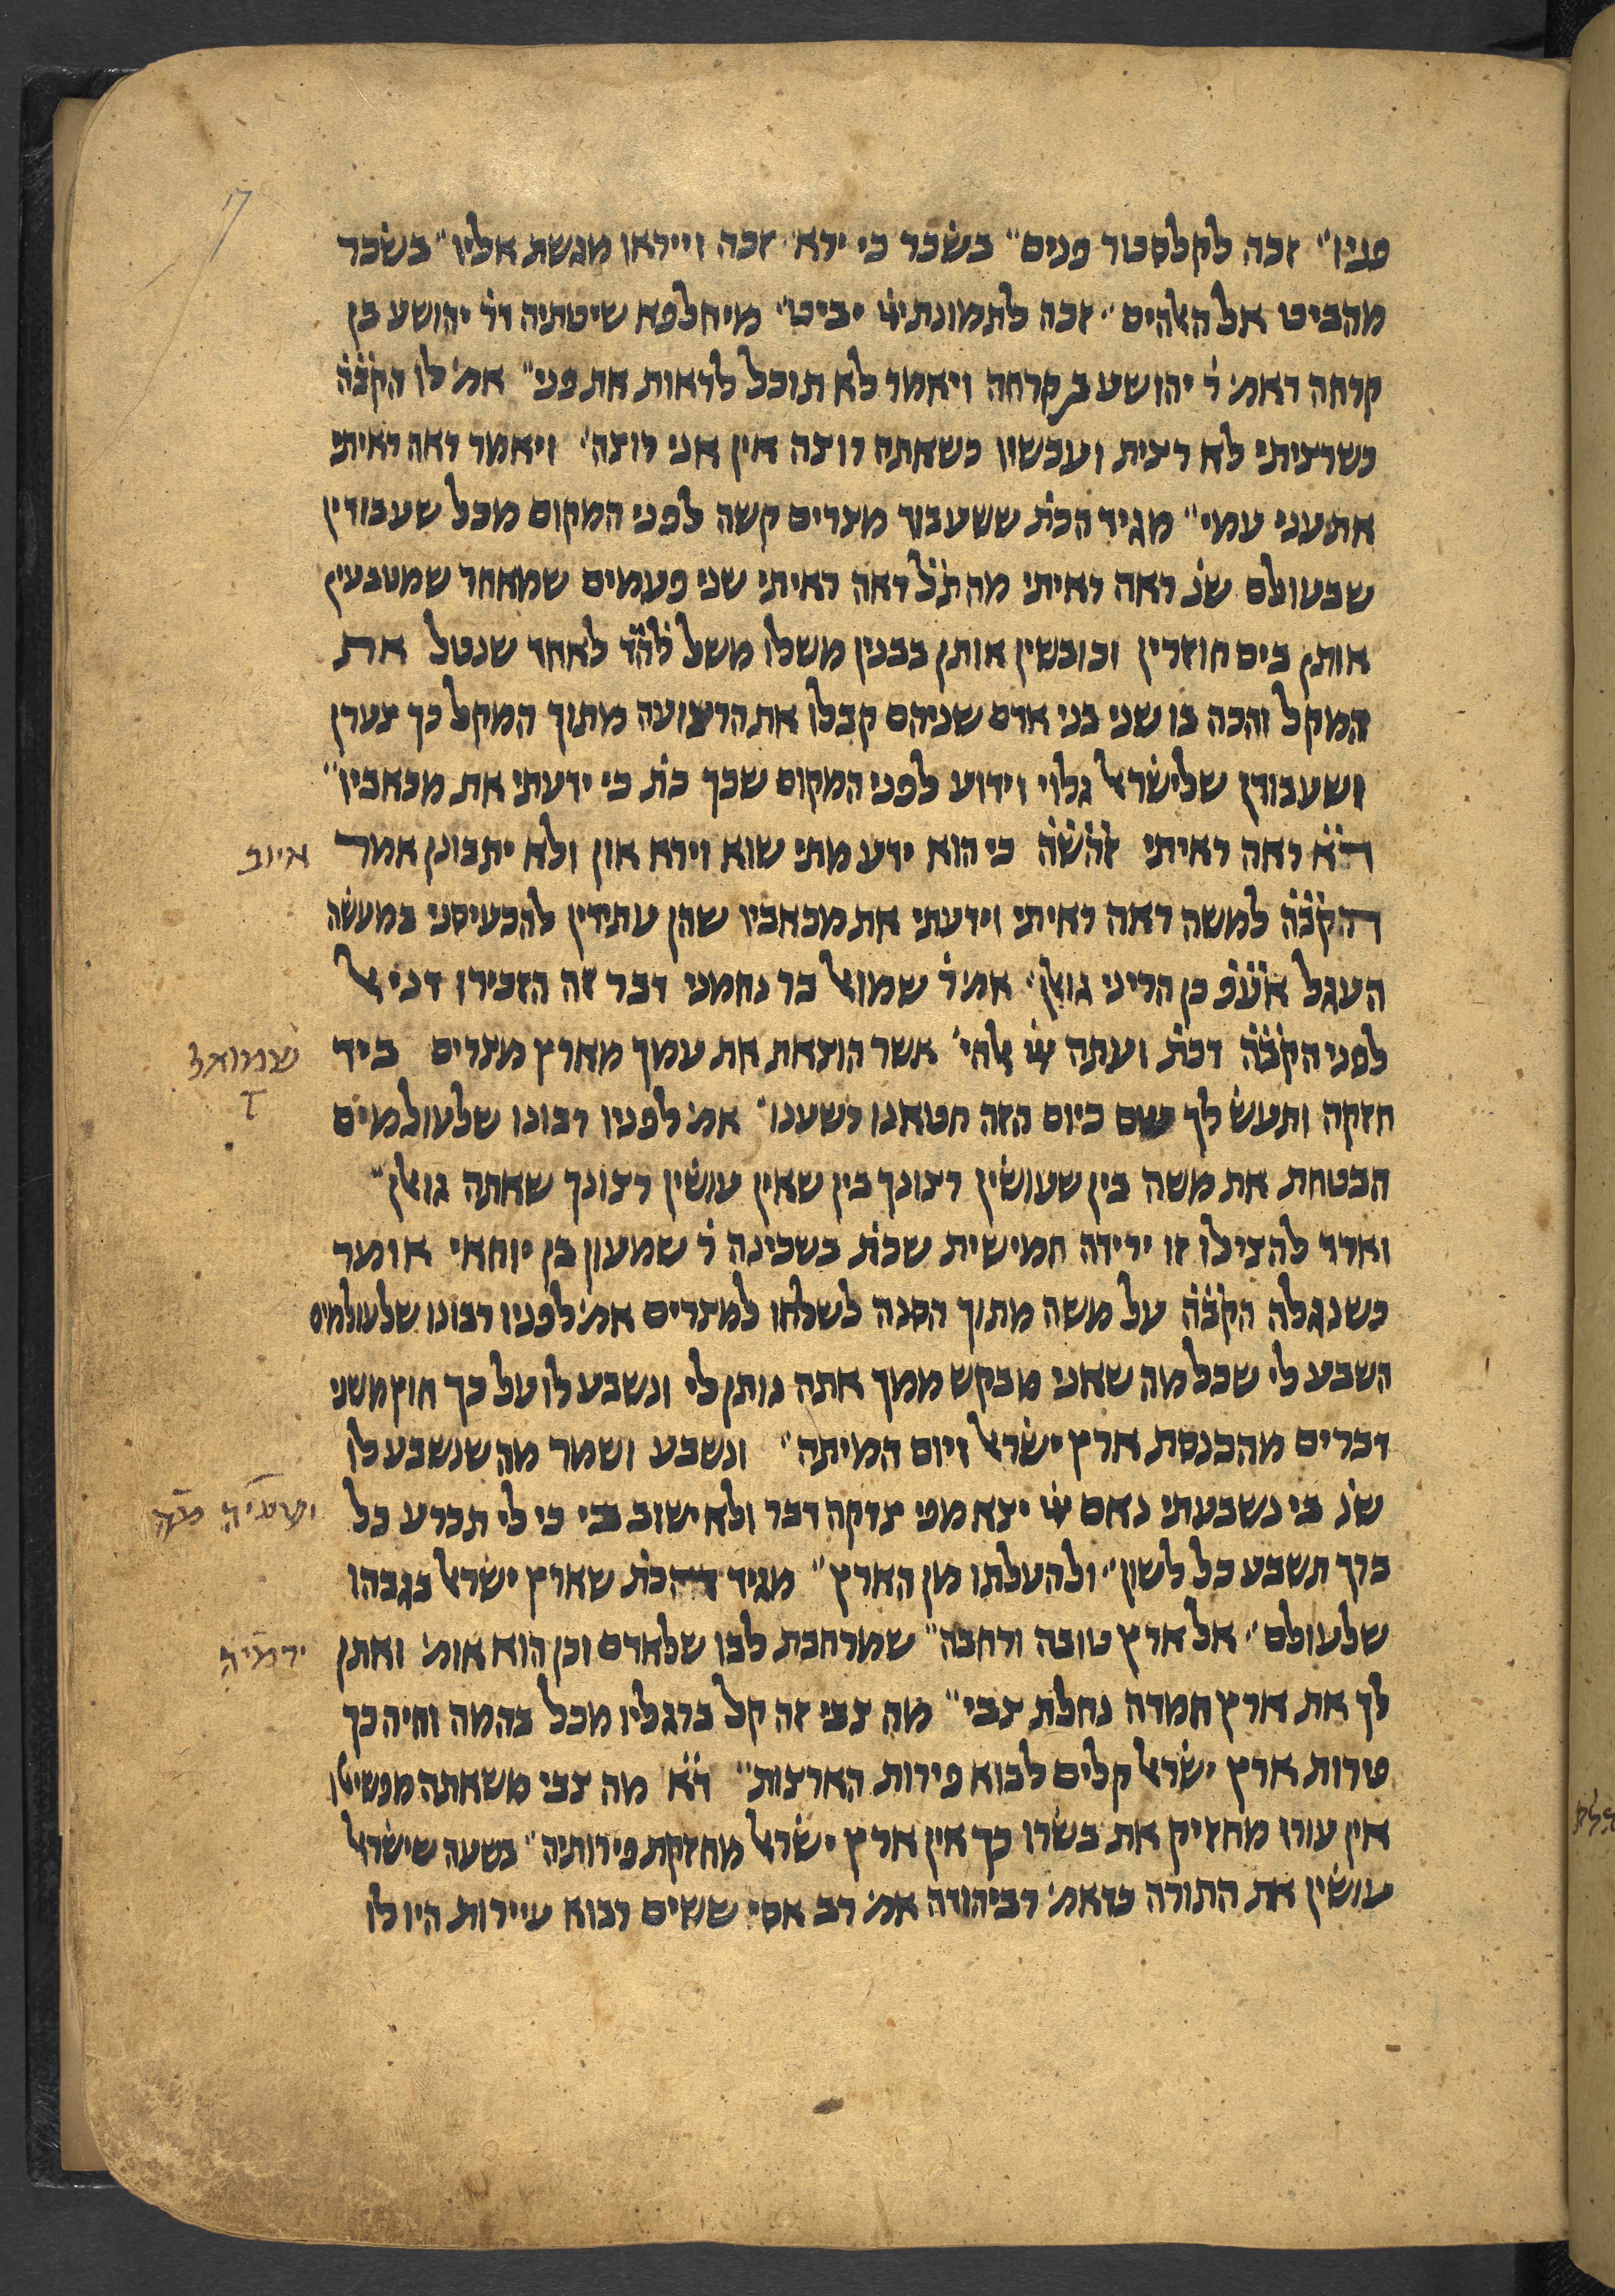 17
פניו״ זכה לקלסטור פנים״ בשכר כי ירא׳ זכה וייראו מגשת אליו״ בשכר
מהביט אל האלהים״ זכה לתמונת ייי יביט״ מיחלפא שיטתיה דר׳ יהושע בן
קרחה דאמ׳ ר׳ יהושע בן קרחה ויאמר לא תוכל לראות את פני״ אמ׳ לו הקבה
כשרציתי לא רצית ועכשיו כשאתה רוצה אין אני רוצה״ ויאמר ראה ראיתי
את עני עמי״ מגיד הכת׳ ששעבוד מצרים קשה לפני המקום מכל שעבודין
שבעולם שנ׳ ראה ראיתי מה תל ראה ראיתי שני פעמים שמאחר שמטבעין
אותן בים חוזרין וכובשין אותן בבנין משלו משל להד לאחד שנטל את
המקל והכה בו שני בני אדם שניהם קבלו את הרצועה מתוך המקל כך צערן
ושעבודן שלישראל גלוי וידוע לפני המקום שכך כת׳ כי ידעתי את מכאביו״
דא ראה ראיתי זהשה כי הוא ידע מתי שוא וירא און ולא יתבונן אמר
איוב
הקבה למשה ראה ראיתי וידעתי את מכאביו שהן עתידין להכעיסני במעשה
העגל אעפ כן הריני גואלן״ אמ׳ ר׳ שמואל בר נחמני דבר זה הזכירו דניאל
לפני הקבה דכת׳ ועתה ייי אלהי׳ אשר הוצאת את עמך מארץ מצרים ביד
שמואל
ד
חזקה ותעש לך שם כיום הזה חטאנו רשענו״ אמ׳ לפניו רבונו שלעולמים
הבטחת את משה בין שעושין רצונך בין שאין עושין רצונך שאתה גואלן״
וארד להצילו זו ירידה חמישית שכת׳ בשכינה ר׳ שמעון בן יוחאי אומר
כשנגלה הקבה על משה מתוך הסנה לשלחו למצרים אמ׳ לפניו רבונו שלעולמים
השבע לי שכל מה שאני מבקש ממך אתה נותן לי ונשבע לו על כך חוץ משני
דברים מהכנסת ארץ ישראל ויום המיתה״ ונשבע ושמר מה שנשבע לו
שנ׳ בי נשבעתי נאם ייי יצא מפי צדקה דבר ולא ישוב כי לי תכרע כל
ישעיה מה
ברך תשבע כל לשון״ ולהעלתו מן הארץ״ מגיד הכת׳ שארץ ישראל בגבהו
שלעולם״ אל ארץ טובה ורחבה״ שמרחבת לבו שלאדם וכן הוא אומ׳ ואתן
ירמיה
לך את ארץ חמדה נחלת צבי״ מה צבי זה קל ברגליו מכל בהמה וחיה כך
פירות ארץ ישראל קלים לבוא פירות הארצות״ דא מה צבי משאתה מפשיטו
אין עורו מחזיק את בשרו כך אין ארץ ישראל מחזקת פירותיה״ בשעה שישראל
עושין את התורה כדאמ׳ רב יהודה אמ׳ רב אסי ששים רבוא עיירות היו לו